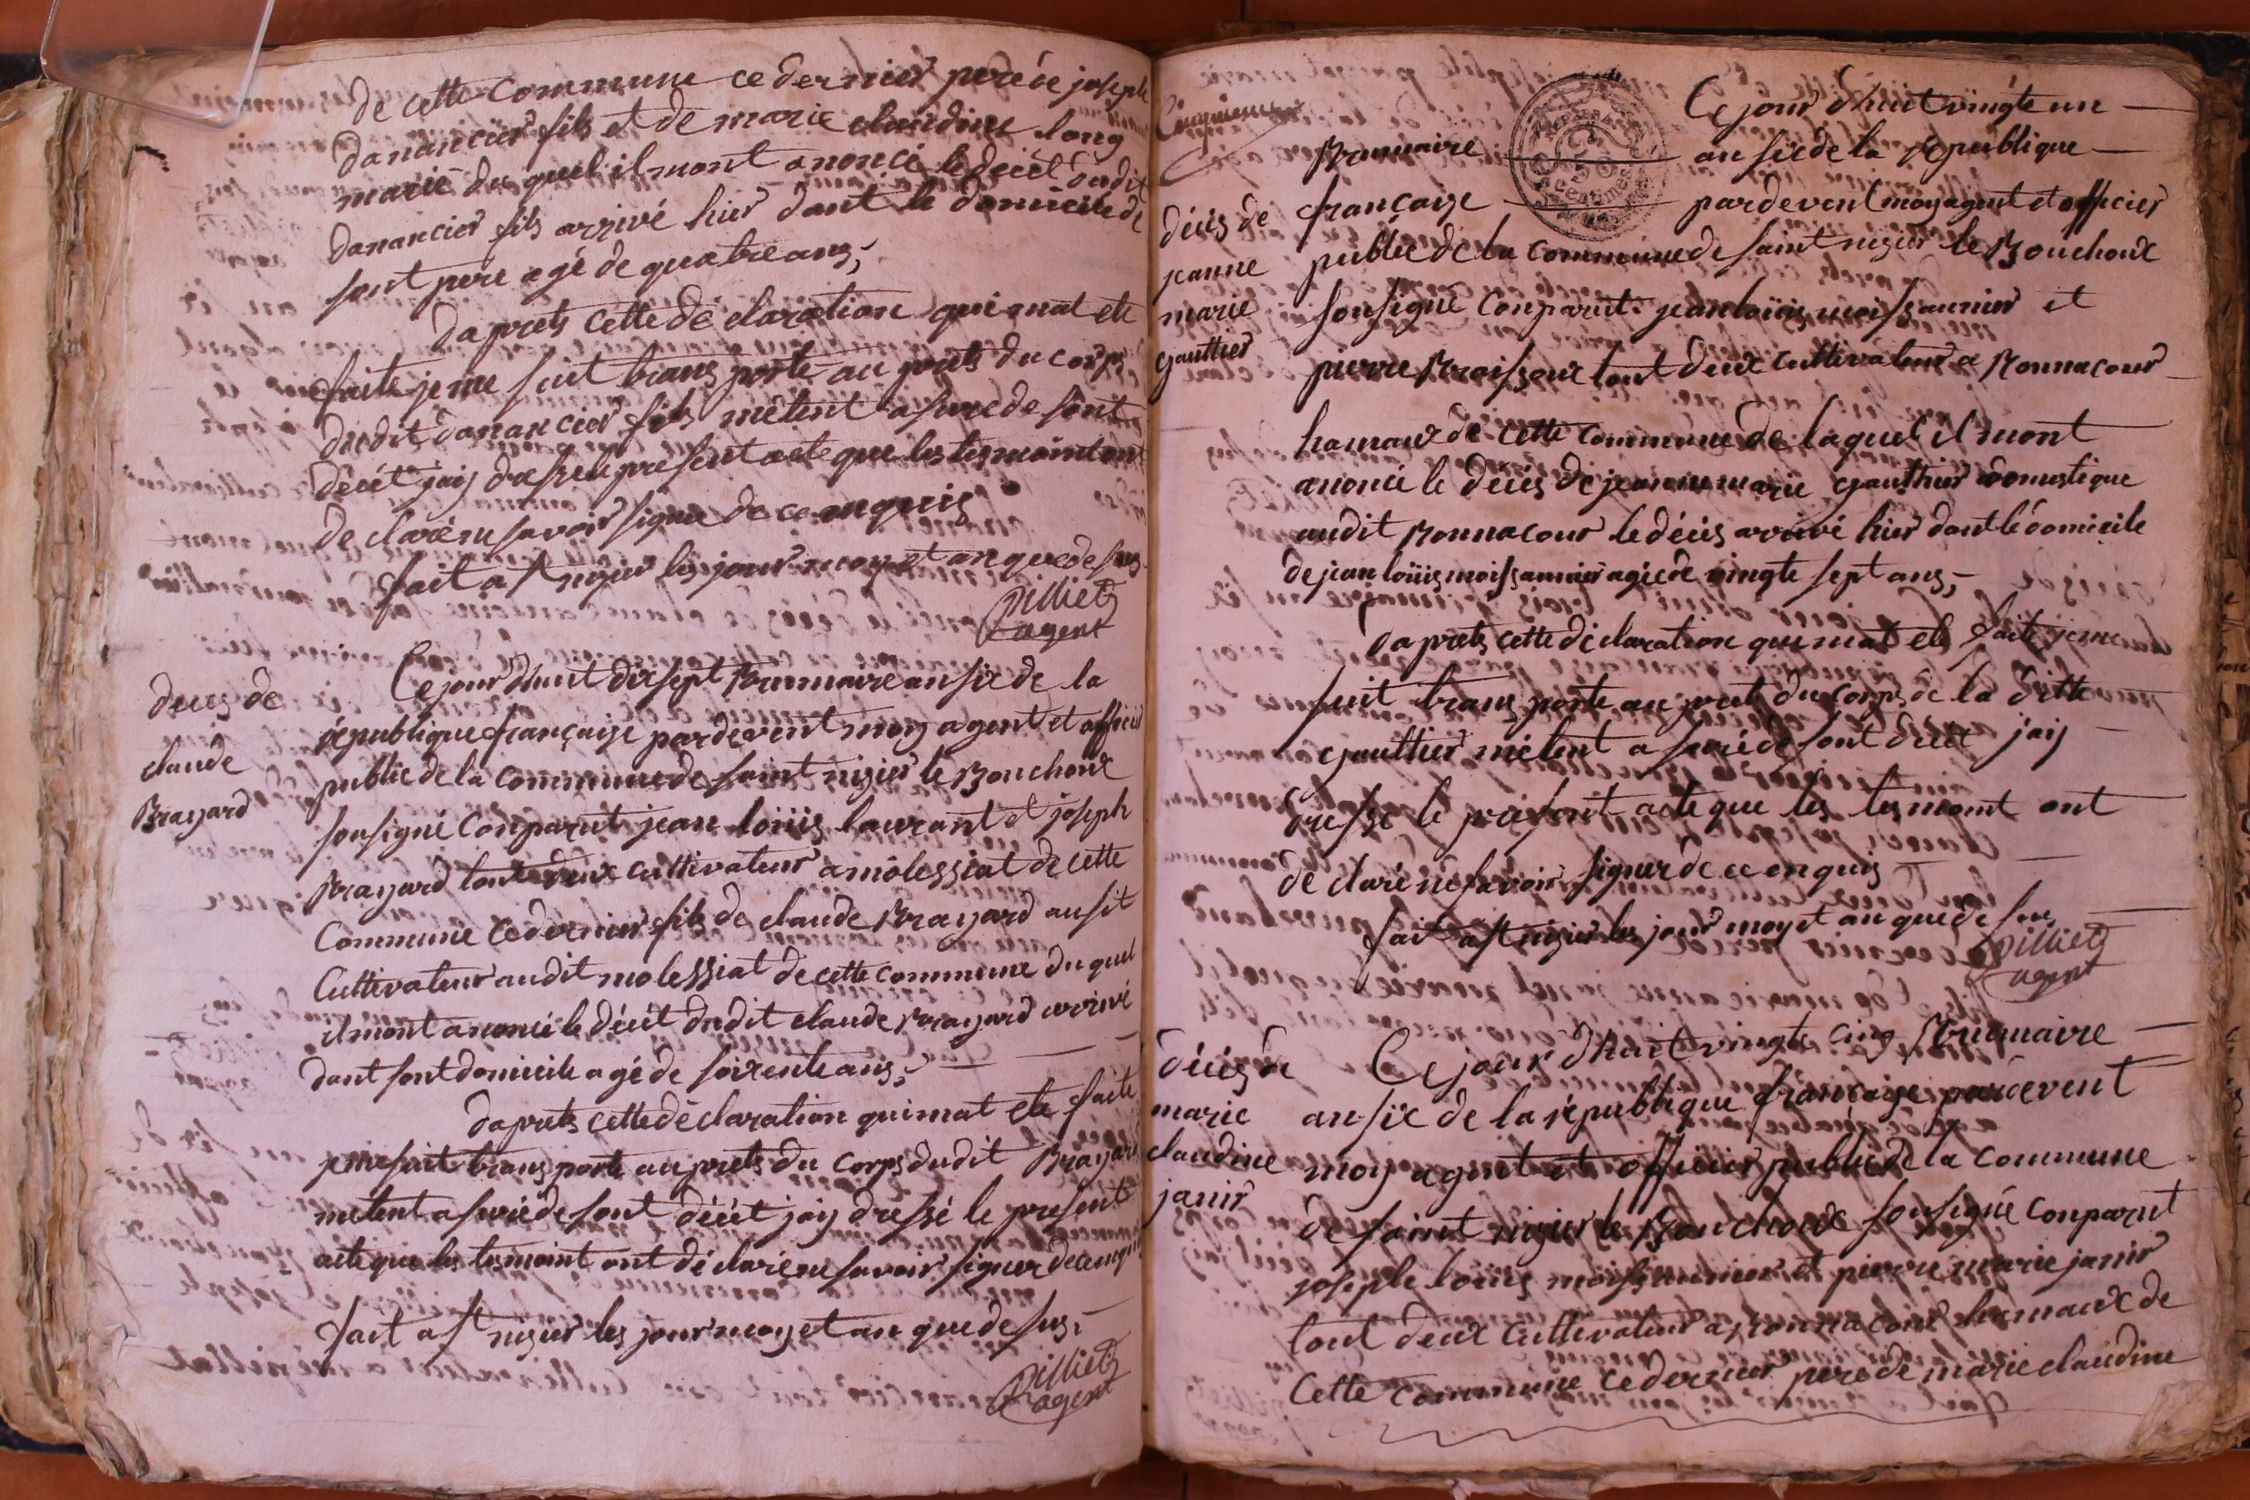 de cette Commune ce dernier pere de joseph
danancier fils et de marie claudine long
marié du quel il mont anoncé le décèt dudit
danancier fils arrivé hier dant le domicile de
sont pere agé de quatre ans ;
daprets cette déclaration qui mat ete
faite je me suit transporté au prets du corps
dudit danancier fils métent asuré de sont
décét jaij dressé le present acte que les tesmoint ont
declaré ne savoir signé de ce enquis
fait a st nizier les jour moy et an que desus
Pilliet
agent
decès de
claude
Brayard
Ce jour dhuit dix sept Brumaire an six de la
republique française pardevent moy agent et officier
public de la commune de saint nizier le Bouchoux
sousigné Conparut jean loüis laurant et joseph
Brayard tout deux cultivateur a molessiat de cette
Commune ce dernier fils de claude Brayard ausit
Cultivateur audit molessiat de cette commune du quel
il mont anoncé le décét dudit claude Brayard arrivé
dant sont domicile agé de soixente ans ;
daprets cette déclaration qui mat ete faite
je me suit transporté au prets du corps dudit Brayard
métent asuré de sont décét jaij dressé le present
acte que les tesmoint ont déclaré ne savoir signer de ce enquis
fait a st nizier les jour moy et an que desus ;
Pilliet
agent
Ce jour dhuit vingte un
Brumaire an six de la republique
française pardevent moy agent et officier
décés de
jeanne
marie
gauttier
public de la commune de saint nizier le Bouchoux
sousigné Conparut jean loüis moissonnier et
pierre Broissoux tout deux cultivateur a Bonnacour
hamaux de cette commune de laquel il mont
anoncé le décés de jeanne marie gauthier domestique
audit Bonnacour le décés arrivé hier dant le domicile
de jean loüis moissonnier agée de vingte sept ans ;
daprets cette déclaration qui mat ete faite je me
suit transporté au prets du corps de la ditte
gauttier métent asuré de sont décét jaij
dressé le present acte que les tesmoint ont
declaré ne savoir signer de ce enquis
fait a st nizier les jour moy et an que desus
Pilliet
agent
décés de
marie
claudine
janir
Ce jour dhuit vingte cinq Brumaire
an six de la république française pardevent
moy agent et officier public de la commune
de saint nizier le Bouchoux sousigné Conparut
joseph loüis moissonnier et pierre marie janir
tout deux Cultivateur a Bonnacour hamaux de
Cette commune ce dernier pere de marie claudine